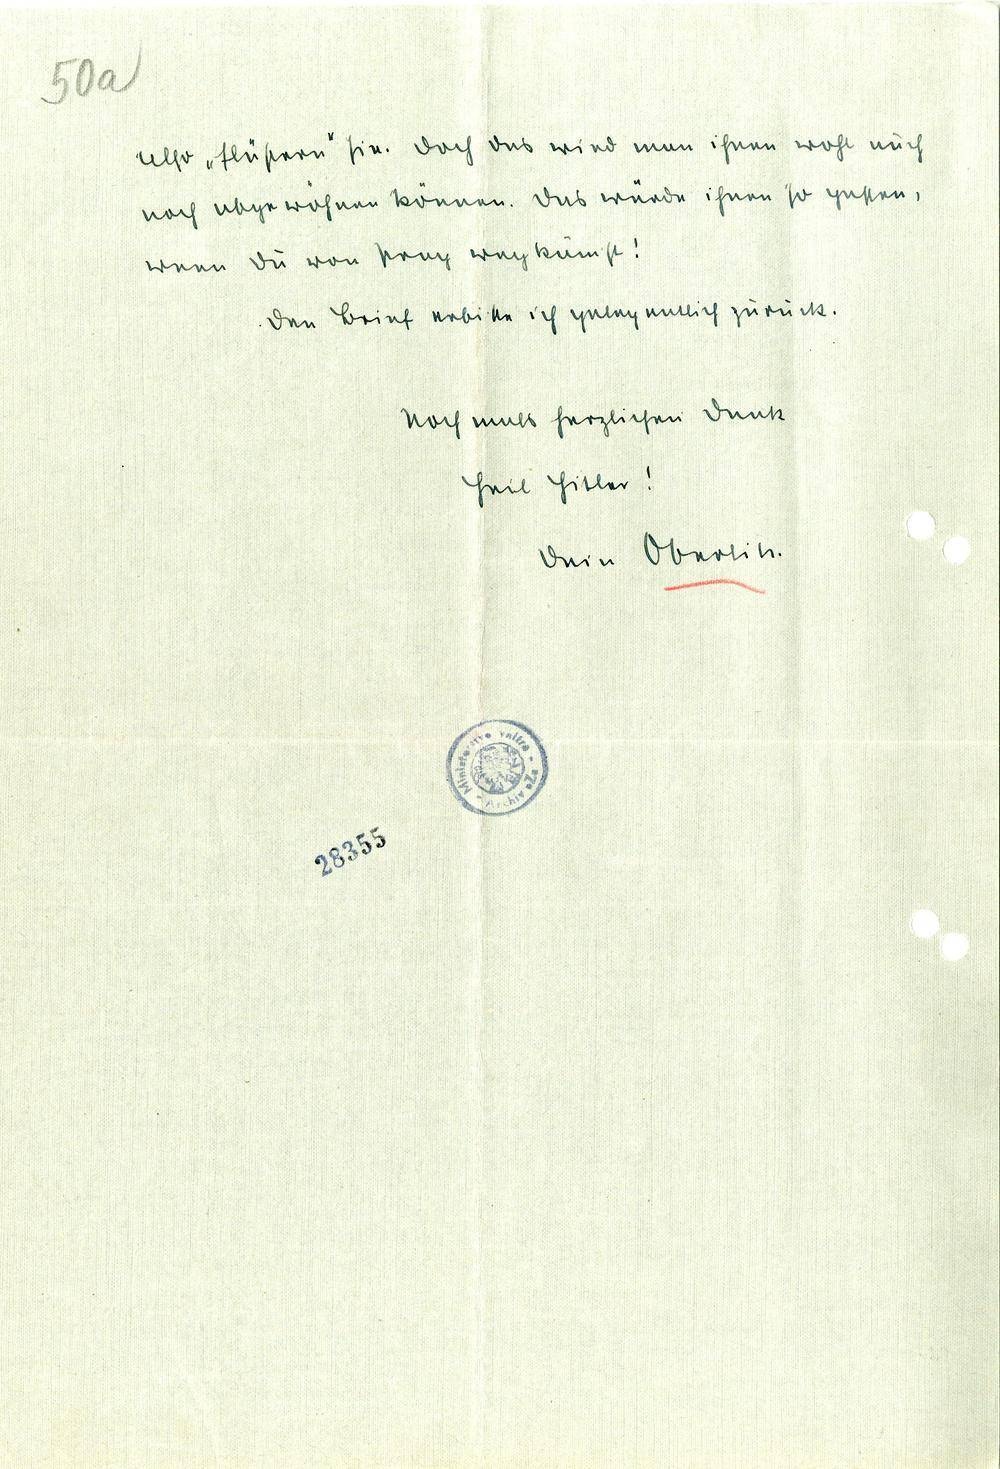 50a
Also „flüstern" sie. Doch das wird man ihnen wohl auch
noch abgewöhnen können. Das würde ihnen so passen,
wenn Du von Prag wegkämst!
Den Brief erbitte ich gelegentlich zurück.
Nochmals herzlichen Dank
Heil Hitler!
Dein
Ministerstvo vnitra - Archiv
28355